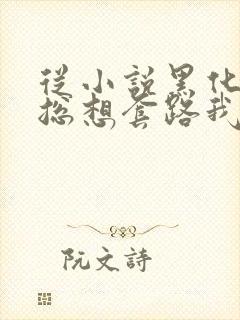 從小說黑化
總想套路我
阮文詩